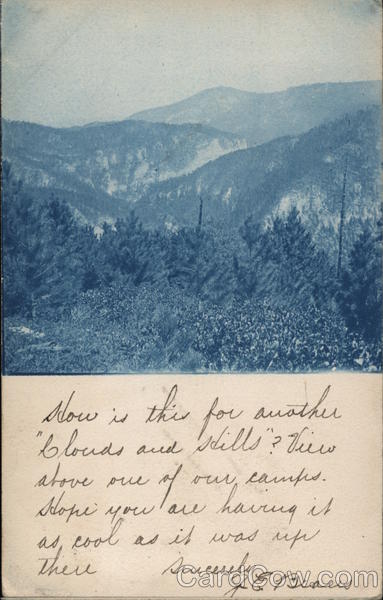 How is this for another
"Clouds and Hills"? View
above one of our camps.
Hope you are having it
as cool as it was up
there Sincerely
CardCow.com